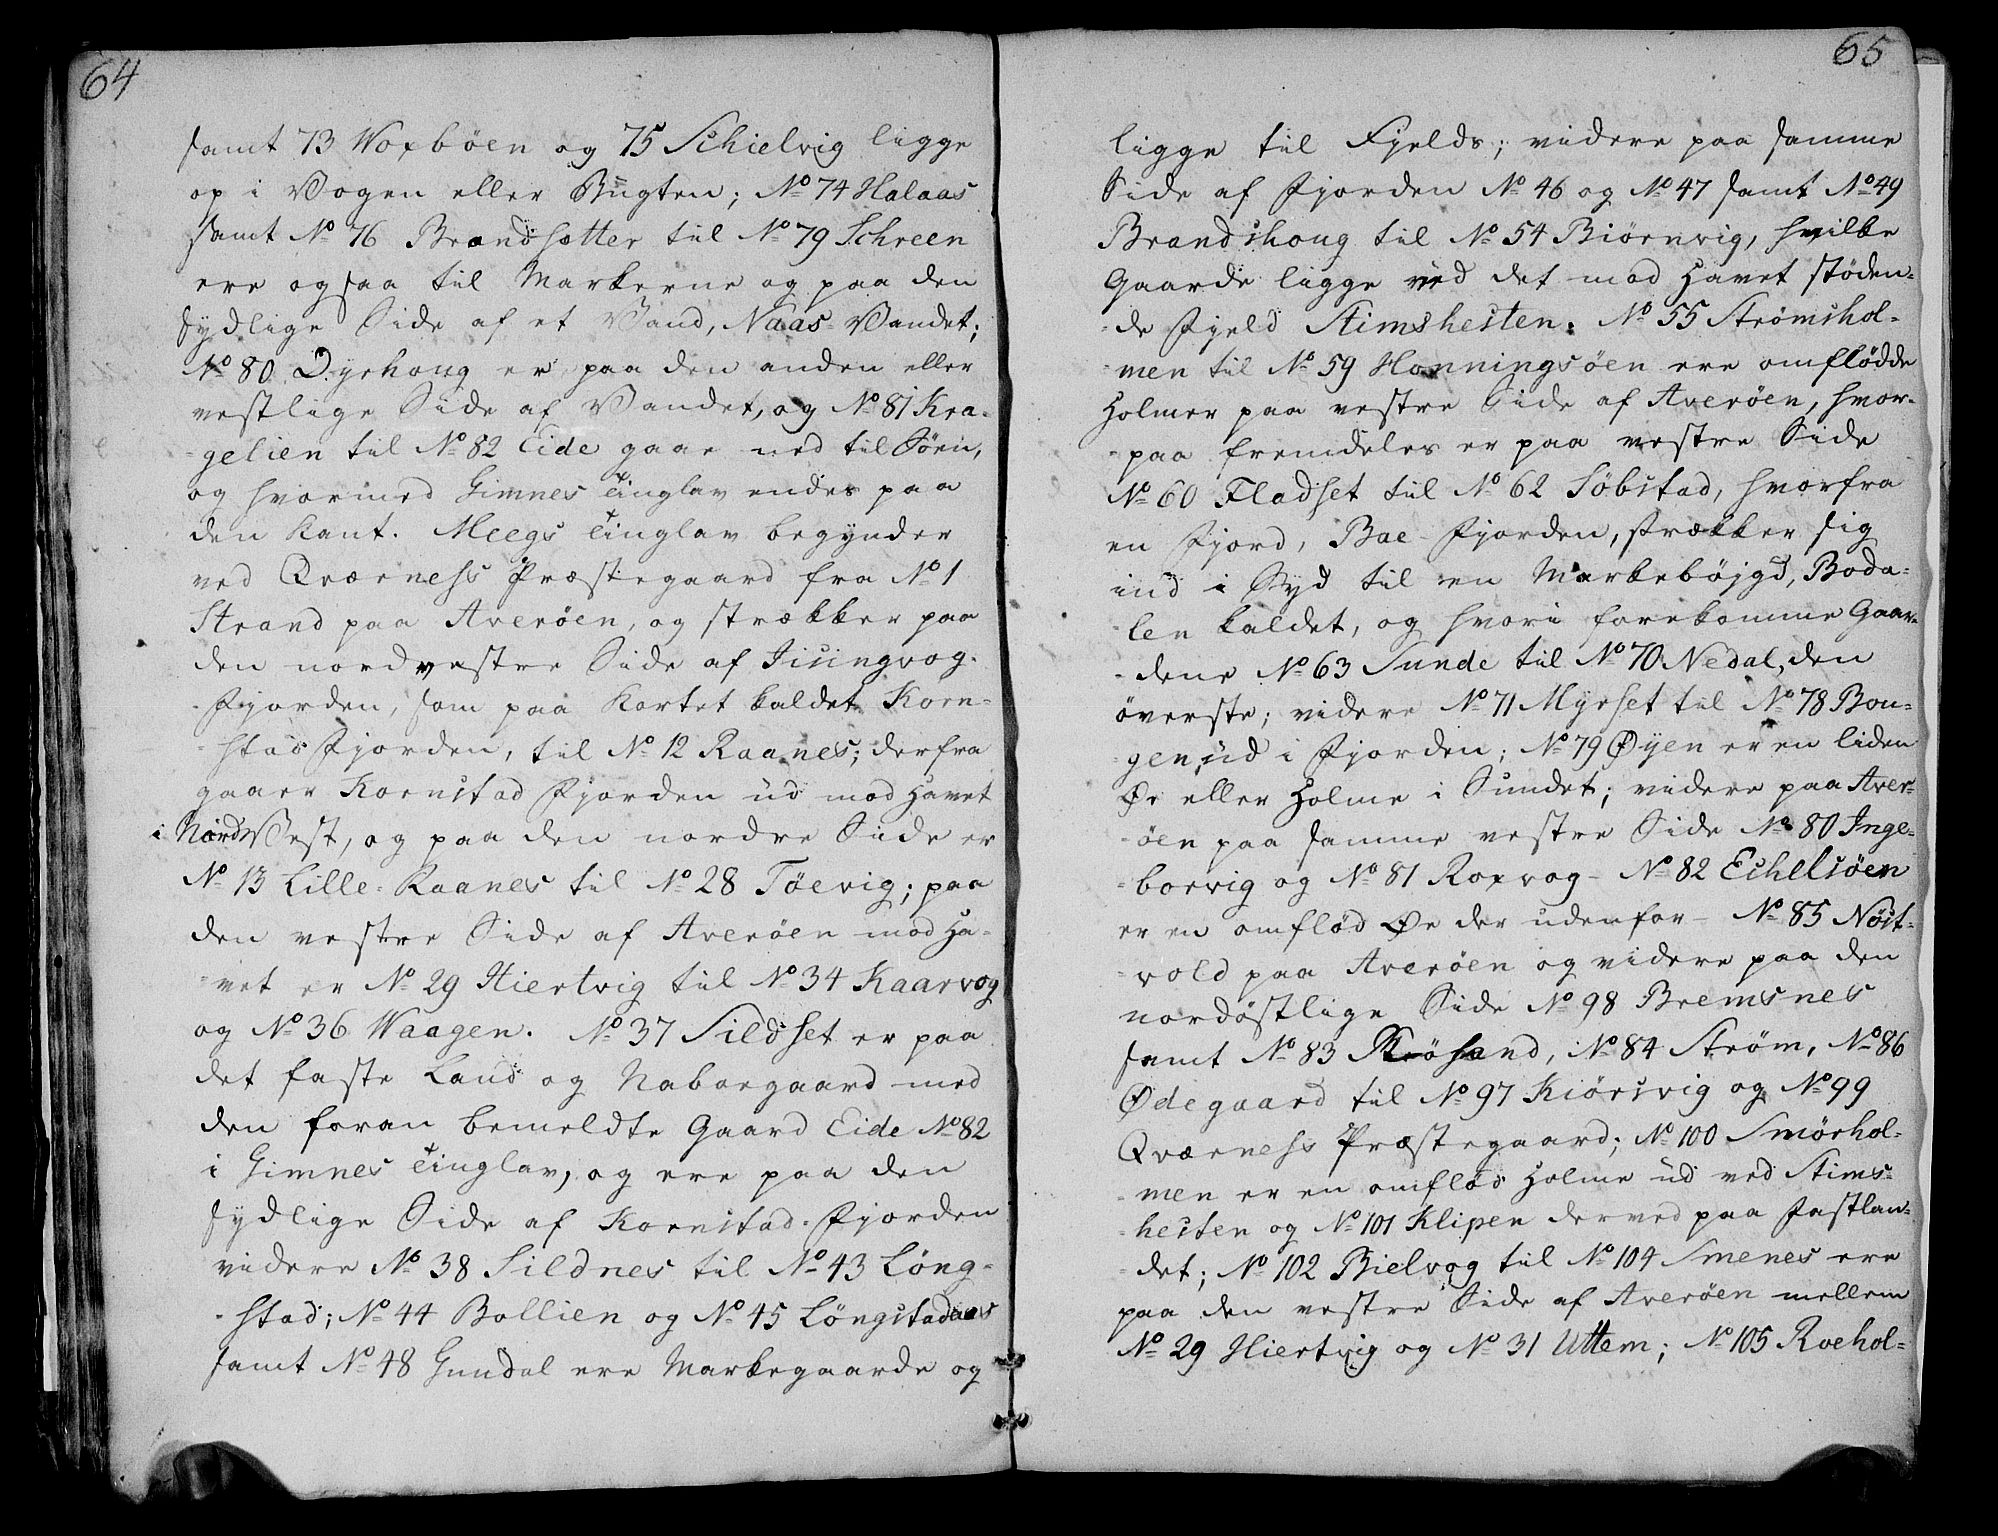 64
samt 73 Woxbøen og 75 Schielvig ligge
op i Vogen eller Bugten; No 74 Halaas
samt No 76 Brandsætter til No 79 Schreen
ere ogsaa til Markerne og paa den
sydlige Side af et Vand, Naas-Vandet;
No 80 Dyrhoug er paa den anden eller
vestlige Side af Vandet, og No 81 Kra-
-gelien til No 82 Eide gaar ned til Søen,
og hvormed Gimnes Tinglav endes paa
den Kant. Meegs Tinglav begynder
ved Qværness Præstegaard fra No 1
Strand paa Averøen, og strækker paa
den nordvestre Side af Jisingvog-
-Fjorden, som paa Kartet kaldet Korn-
-stad Fjorden, til No 12 Raanes; derfra
gaaer Kornstad Fjorden ud mod Havet
i Nord Vest, og paa den nordre Side er
No 13 Lille-Raanes til No 28 Tøevig; paa
den vestre Side af Averøen mod Ha-
-vet er No 29 Hiertvig til No 34 Kaarvog
og No 36 Waagen. No 37 Sildset er paa
det faste Land og Naboegaard med
den foran bemeldte Gaard Eide No 82
i Gimnes Tinglav, og ere paa den
sydlige Side af Kornstad-Fjorden
videre No 38 Sildnes til No 43 Løng-
-stad; No 44 Bollien og No 45 Løngstadaas
samt No 48 Gundal ere Markegaarde og
65
ligge til Fjelds; videre paa samme
Side af Fjorden No 46 og No 47 samt No 49
Brandshoug til No 54 Biørnvig, hvilke
Gaarde ligge ved det mod Havet støden-
-de Fjeld Stimshesten. No 55 Strømshol-
-men til No 59 Honningsøen ere omflødde
Holmer paa vestre Side af Averøen, hvor-
-paa fremdeles er paa vestre Side
No 60 Fladset til No 62 Søbstad, hvorfra
en Fjord, Bae-Fjorden, strækker sig
ind i Syd til en Markebøjgd, Boda-
-len kaldet, og hvori forekomme Gaar-
-dene No 63 Sunde til No 70 Nedal, den
øverste; videre No 71 Myrset til No 78 Bon-
-gen, ud i Fjorden; No 79 Øyen er en liden
Øe eller Holme i Sundet; videre paa Aver-
-øen paa samme vestre Side No 80 Inge-
-borvig og No 81 Roxvog - No 82 Echelsøen
er en omflød Øe der udenfor - No 85 Nøst-
-vold paa Averøen og videre paa den
nordøstlige Side No 98 Bremsnes
samt No 83 Krøsand, No 84 Strøm, No 86
Ødegaard til No 97 Kiørsvig og No 99
Qværness Præstegaard; No 100 Smørhol-
-men er en omflød Holme ud ved Stims-
-hesten og No 101 Klipen derved paa Fastlan-
-det; No 102 Bielvog til No 104 Smenes ere
paa den vestre Side af Averøen mellem
No 29 Hiertvig og No 31 Uttem; No 105 Roehol-